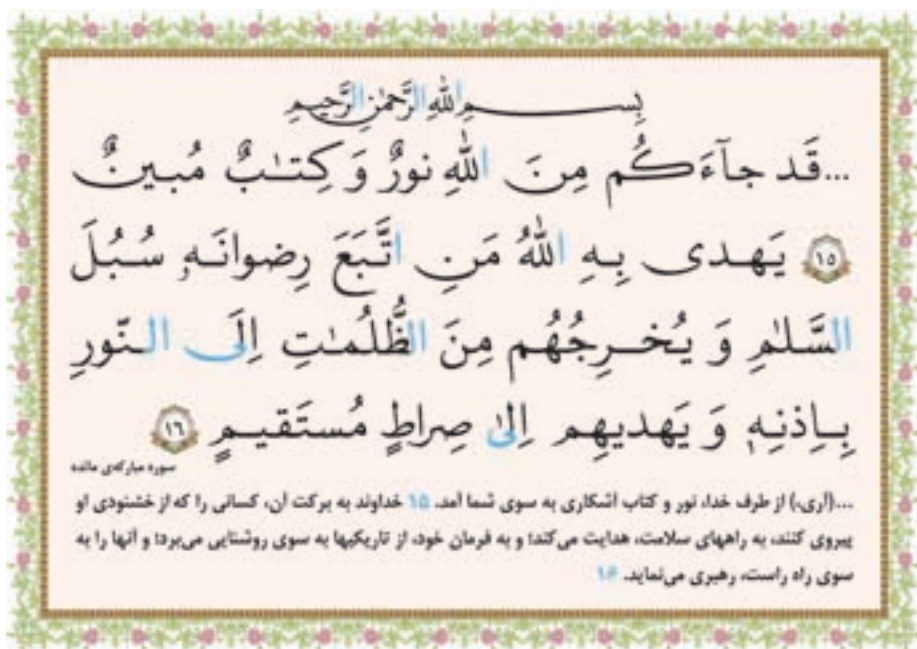 بِسـمِ اللهِ الرَّحمٰنِ الرَّحیمِ
...قَد جآءَکُم مِنَ اللهِ نورٌ وَ کِتـٰبٌ مُبینٌ
﴿١٥﴾ یَهـدی بِـهِ اللهُ مَنِ اتَّبَعَ رِضوانَـهٗ سُبُلَ
السَّلـٰمِ وَ یُخـرِجُهُم مِنَ الظُّلُمـٰتِ اِلَی النّورِ
بِـاِذنِـهٖ وَ یَهدیهِم اِلیٰ صِراطٍ مُستَقیـمٍ ﴿١٦﴾
سوره مبارکه‌ی مائده
...(آری،) از طرف خدا، نور و کتاب آشکاری به سوی شما آمد. ۱۵ خداوند به برکت آن، کسانی را که از خشنودی او
پیروی کنند، به راههای سلامت، هدایت می‌کند؛ و به فرمان خود، از تاریکیها به سوی روشنایی می‌برد؛ و آنها را به
سوی راه راست، رهبری می‌نماید. ۱۶